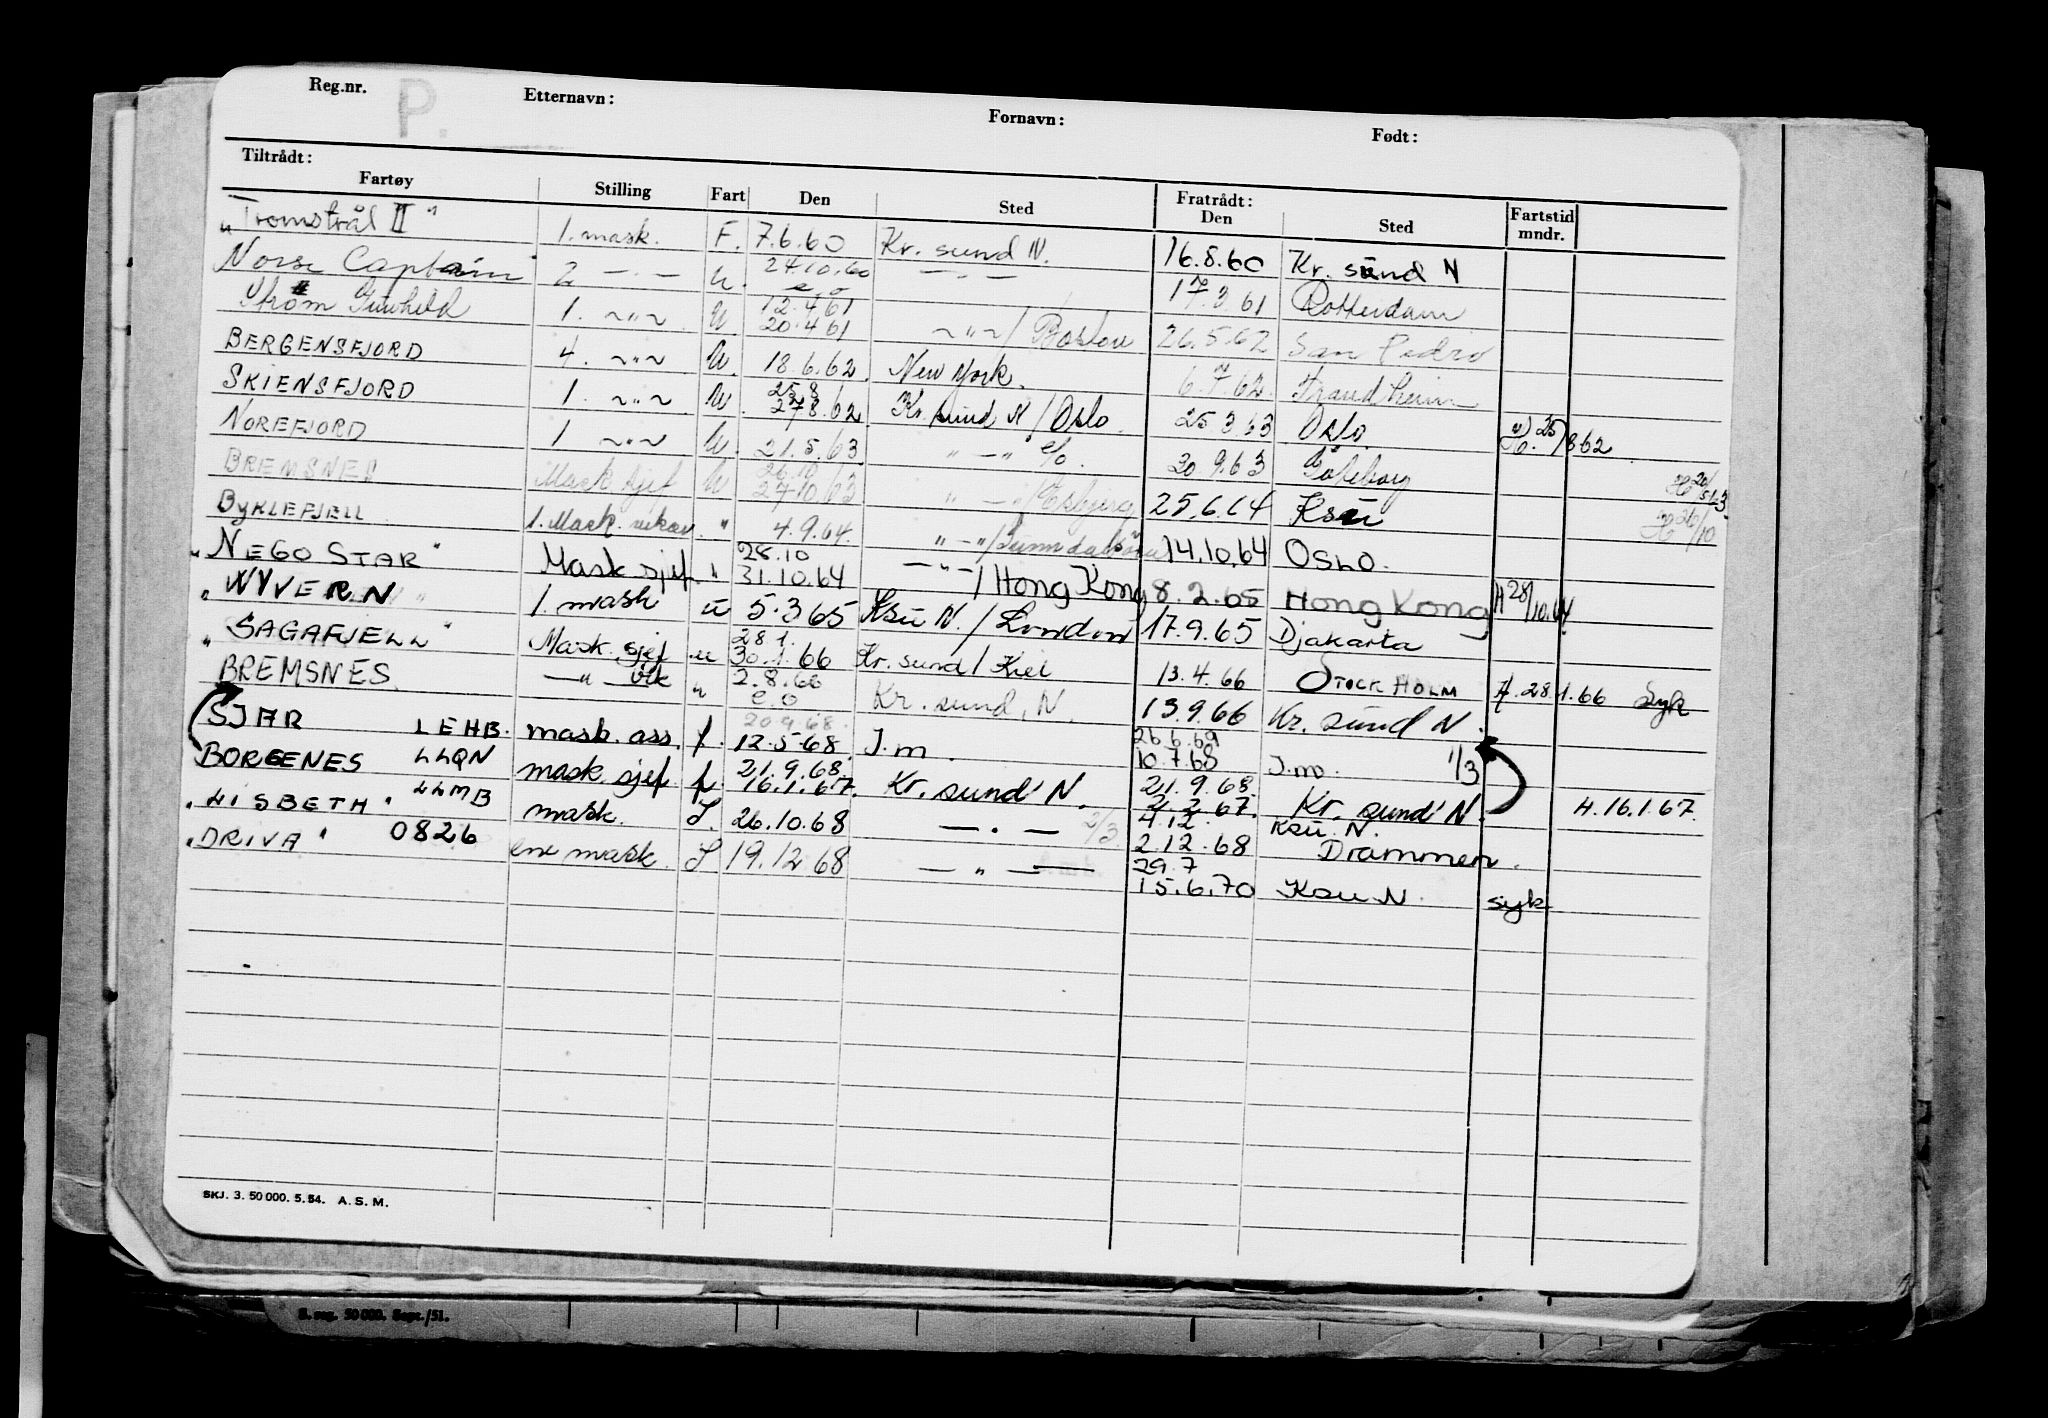 Reg.nr. P. Etternavn: Fornavn: Født:
Tiltrådt: Fratrådt:
Fartøy Stilling Fart Den Sted Den Sted Fartstid mndr.
"Tromstrål II" 1. mask. F. 7.6.60 Kr. sund N. 16.8.60 Kr. sund N
Norse Captain 2 — " — u. 24.10.60 — " — 17.3.61 Rotterdam
Strøm Gunhild 1. ~"~ u 12.4.61 20.4.61 ~"~ / Boston 26.5.62 San Pedro
BERGENSFJORD 4. ~"~ u. 18.6.62. New York. 6.7.62. Trondheim
SKIENSFJORD 1. ~"~ u. 25.8 27.8.62 Kr. sund N / Oslo. 25.3.63 Oslo H. 25/8 62
NOREFJORD 1 ~"~ u. 21.5.63 " — " e/o. 20.9.63 Göteborg
BREMSNES Mask sjef u 26.10 27.10.63 " — " / Esbjerg 25.6.64 Ksu H 26/10
BYKLEFJELL 1. Mask. vikar " 4.9.64. " — " / Sunndalsøra 14.10.64 OSLO.
"NEGO STAR" Mask sjef " 28.10 31.10.64 — " — / Hong Kong 8.2.65 Hong Kong H 28/10.64
"WYVERN" 1. mask u 5.3.65 Ksu N. / London 17.9.65 Djakarta
"SAGAFJELL" Mask. sjef u 28.1. 30.1.66 Kr. sund / Kiel 13.4.66 STOCKHOLM H. 28.1.66 Syk
BREMSNES. — " — vik " 2.8.66 e.o Kr. sund, N. 13.9.66 Kr. sund N.
SJAR LEHB. mask. ass. f. 20.9.68. 12.5.68 J.m. 26.6.69 10.7.68 J.m. 1/3
BORGENES LLQN mask. sjef. f. 21.9.68. 16.1.67. Kr. sund N. 21.9.68. 2.2.67. Kr. sund N. H. 16.1.67.
"LISBETH" LLMB mask. S. 26.10.68 — " — 2/3. 4.12. 2.12.68 Ksu. N. Drammen.
"DRIVA" 0826 ene mask. S 19.12.68 — " — 29.7 15.6.70 Ksu N. syk
SKJ. 3. 50 000. 5. 54. A. S. M.
S. reg. 50 000. Sept./51.